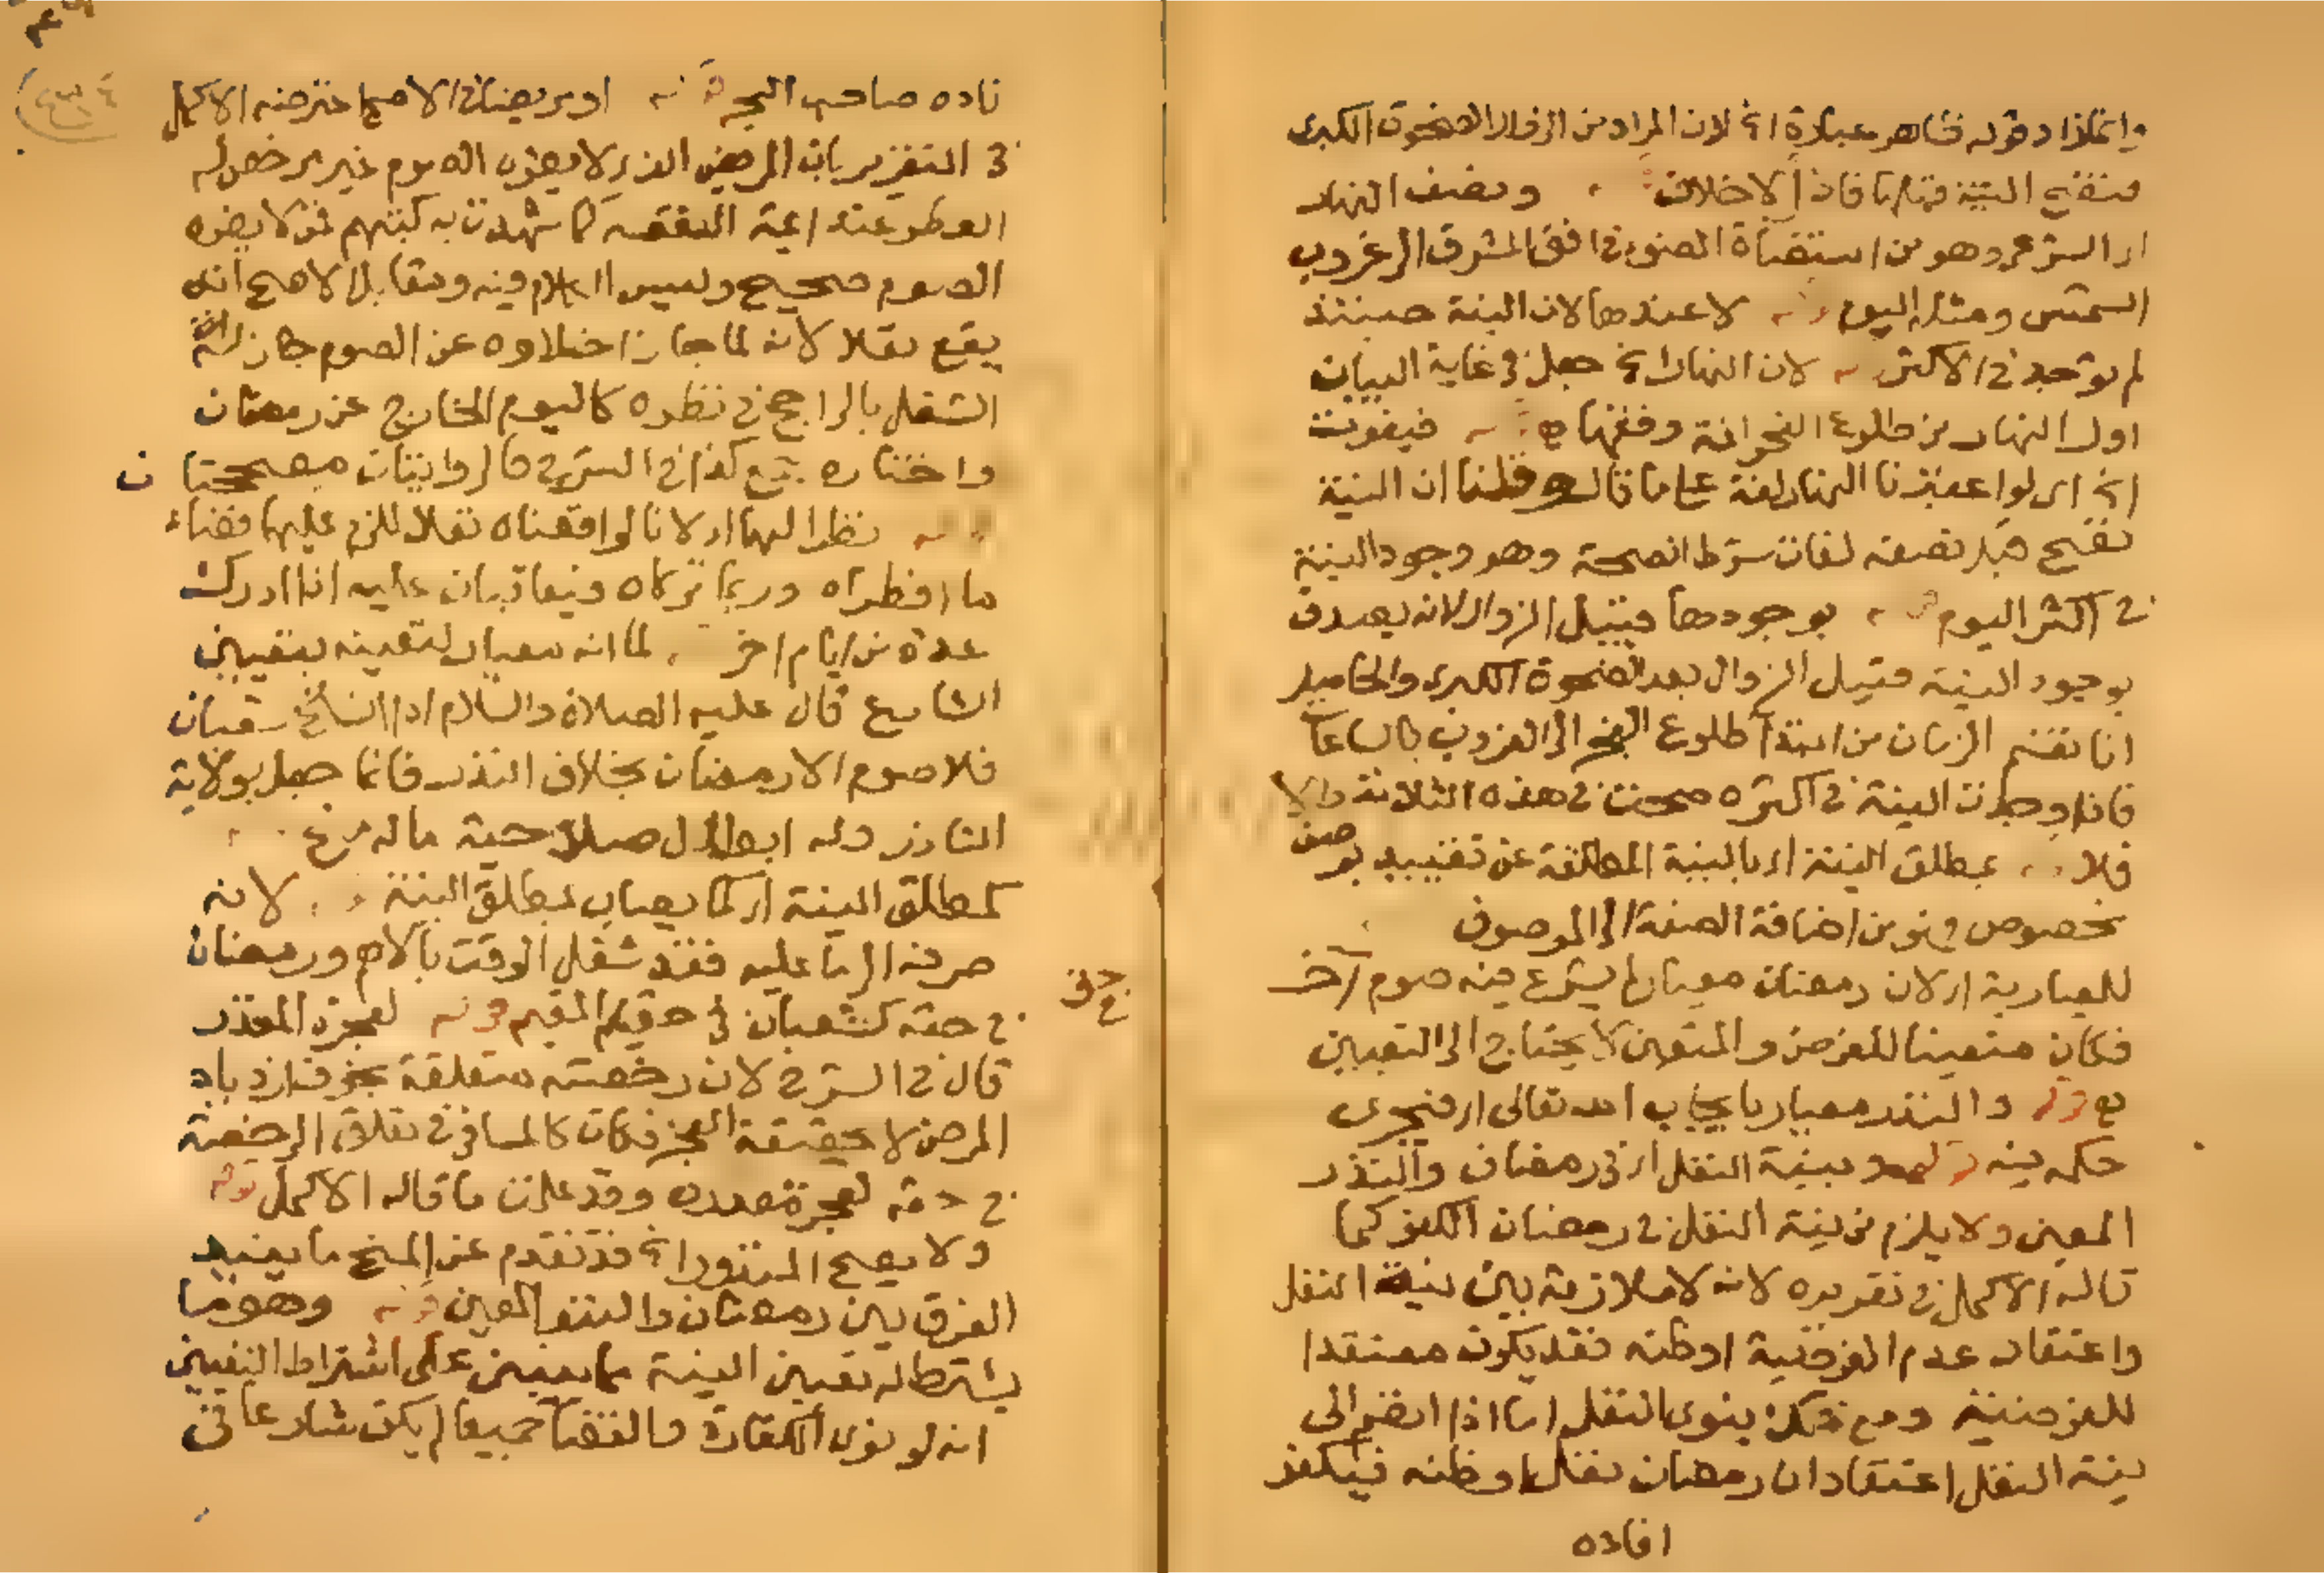 وانما زاد قوله ظاهر عبارة الخ لان المراد من الزوال الضحوة الكبرى
فتصح النية قبلها فاذا لا خلاف ونصف النهار
اي الشرعي وهو من استضاة الضوء في افق المشرق الى غروب
الشمس ومثله اليوم لا عندها لان النية حينئذ
لم توجد في الاكثر لان النهار الخ جعل في غاية البيان
اول النهار من طلوع الفجر لغة وفقها فيفوت
الخ اي لو اعتبرنا النهار لغة على ما قاله وقلنا ان النية
تصح قبل نصفه لفات شرط الصحة وهو وجود النية
في اكثر اليوم بوجودها قبيل الزوال لانه يصدق
بوجود النية قبيل الزوال بعد الضحوة الكبرى والحاصل
انا نقسم الزمان من ابتدا طلوع الفجر الى الغروب بالساعات
فاذا وجدت النية في اكثره صحت في هذه الثلاثة والا
فلا بمطلق النية اي بالنية المطلقة عن تقييد بوصف
بخصوص فهو من اضافة الصفة الى الموصوف
للمعيارية اي لان رمضان معيار لم يشرع فيه صوم آخر
فكان متعينا للفرض والمتعين لا يحتاج الى التعيين
والنذر معيار بايجاب الله تعالى اي فيجري
حكمه فيه وبنية النفل اي في رمضان والنذر
المعين ولا يلزم من نية النفل في رمضان الكفر كما
قاله الاكمل في تقريره لانه لا ملازمة بين نية النفل
واعتقاد عدم الفرضية او ظنه فقد يكون معتقدا
للفرضية ومع ذلك ينوي النفل اما اذا انضم الى
نية النفل اعتقاد ان رمضان نفل او ظنه فيكفر
افاده
فاده صاحب البحر او مريضا في الاصح اعترضه الاكمل
في التقرير بان المريض الذي لا يضره الصوم غير مرخص له
الفطر عند ائمة الفقه كما شهدت به كتبهم فمن لا يضره
الصوم صحيح وليس الكلام فيه ومقابل الاصح انه
يقع نفلا لانه لما جاز اخلاؤه عن الصوم جاز له
الشغل بالراجح في نظره كاليوم الخارج عن رمضان
واختاره جمع كذا في الشرح والروايتان مصححتان
نظرا لهما اي لانا لو اوقعناه نفلا للزم عليهما قضاء
ما افطراه وربما تركاه فيعاقبان عليه اذا ادركا
عدة من ايام اخر لما انه معيار لتعينه بتعيين
الشارع قال عليه الصلاة والسلام اذا انسلخ شعبان
فلا صوم الا رمضان بخلاف النذر فانما جعل بولاية
الناذر وله ابطال صلاحية ماله
كمطلق النية اي كما يصاب بمطلق النية لانه
صرفه الى ما عليه فقد شغل الوقت بالاهم ورمضان
في حقه كشعبان في حق المقيم لعجزه المقدر
قال في الشرح لان رخصته متعلقة بخوف ازدياد
المرض لا حقيقة العجز فكان كالمسافر في تعلق الرخصة
في حقه لعجز مقدر وقد علمت ما قاله الاكمل قوله
ولا يصح المنذور الخ قد تقدم عن المنح ما يفيد
الفرق بين رمضان والنذر المعين وهو ما
يشترط له تعيين النية مما يبتنى على اشتراط التعيين
انه لو نوى الكفارة والقضا جميعا لم يكن شارعا في